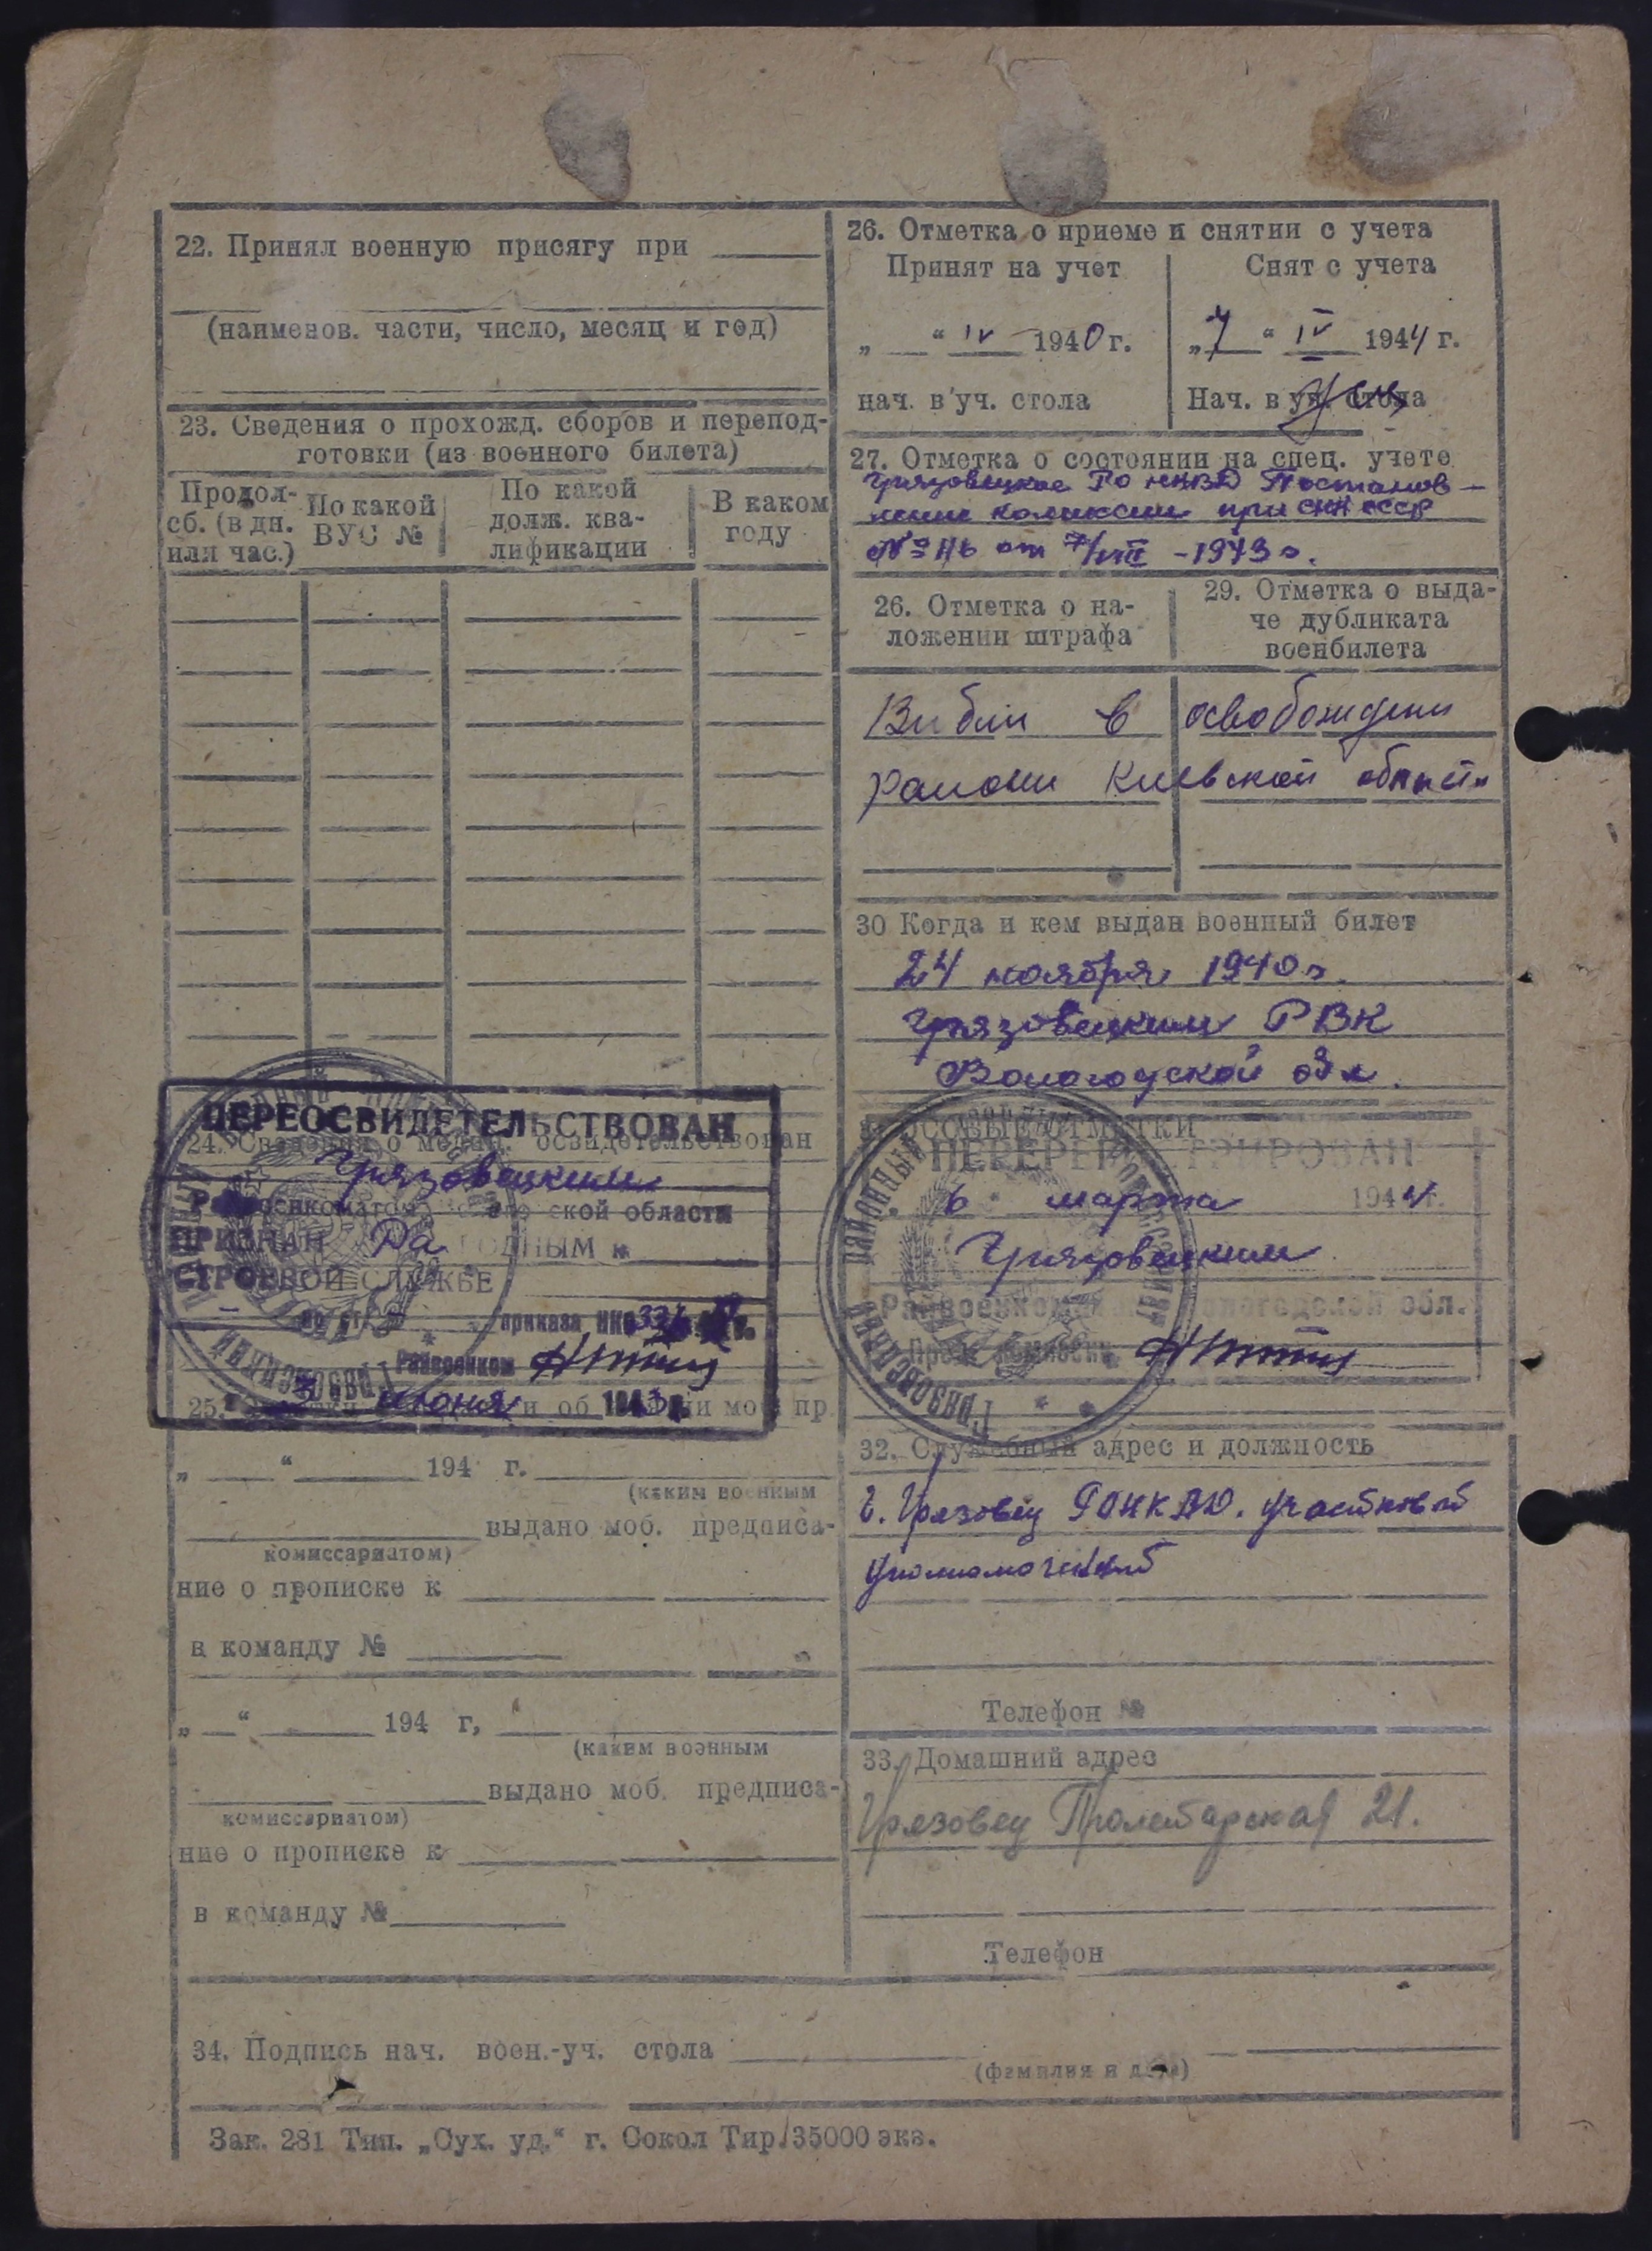 22. Принял военную присягу при
(наименов. части, число, месяц и год)
23. Сведения о прохожд. сборов и перепод-
готовки (из военного билета)
Продол-
сб. (в дн.
или час.)
По какой
ВУС №
По какой
долж. ква-
лификации
В каком
году
ПЕРЕОСВИДЕТЕЛЬСТВОВАН
24. Сведения о медиц. освидетельствован
Грязовецким
Райвоенкоматом ской области
ПРИЗНАН годным к
СТРОЕВОЙ СЛУЖБЕ
по ст. приказа НКО 336
Райвоенком
июня 1943
25.
„ “ 194 г.
(каким военным
выдано моб. предписа-
комиссариатом)
ние о прописке к
в команду №
„ “ 194 г,
(каким военным
выдано моб. предписа-
комиссариатом)
ние о прописке к
в команду №
26. Отметка о приеме и снятии с учета
Принят на учет
„ “ IV 1940 г.
нач. в уч. стола
Снят с учета
„7“ IV 1944 г.
Нач. в уч. стола
27. Отметка о состоянии на спец. учете
Грязовецкое РО НКВД Постанов-
ление комиссии при СНК СССР
№ от 7/VIII - 1943 г.
26. Отметка о на-
ложении штрафа
29. Отметка о выда-
че дубликата
военбилета
Выбыл в освобожден
районы Киевской области
30 Когда и кем выдан военный билет
24 ноября 1940 г.
Грязовецким РВК
Вологодской обл.
ОСОБЫЕ ОТМЕТКИ
ПЕРЕРЕГИСТРИРОВАН
6 марта 1944 г.
Грязовецким
Райвоенкоматом Вологодской обл.
Пред. комиссии
ГРЯЗОВЕЦКИЙ РАЙОННЫЙ
32. Служебный адрес и должность
г. Грязовец РОНКВД. участковый
уполномоченный
Телефон №
33. Домашний адрес
Грязовец Пролетарская 21.
Телефон
34. Подпись нач. воен.-уч. стола
(фамилия и дата)
Зак. 281 Тип. „Сух. уд.“ г. Сокол Тир. 35000 экз.